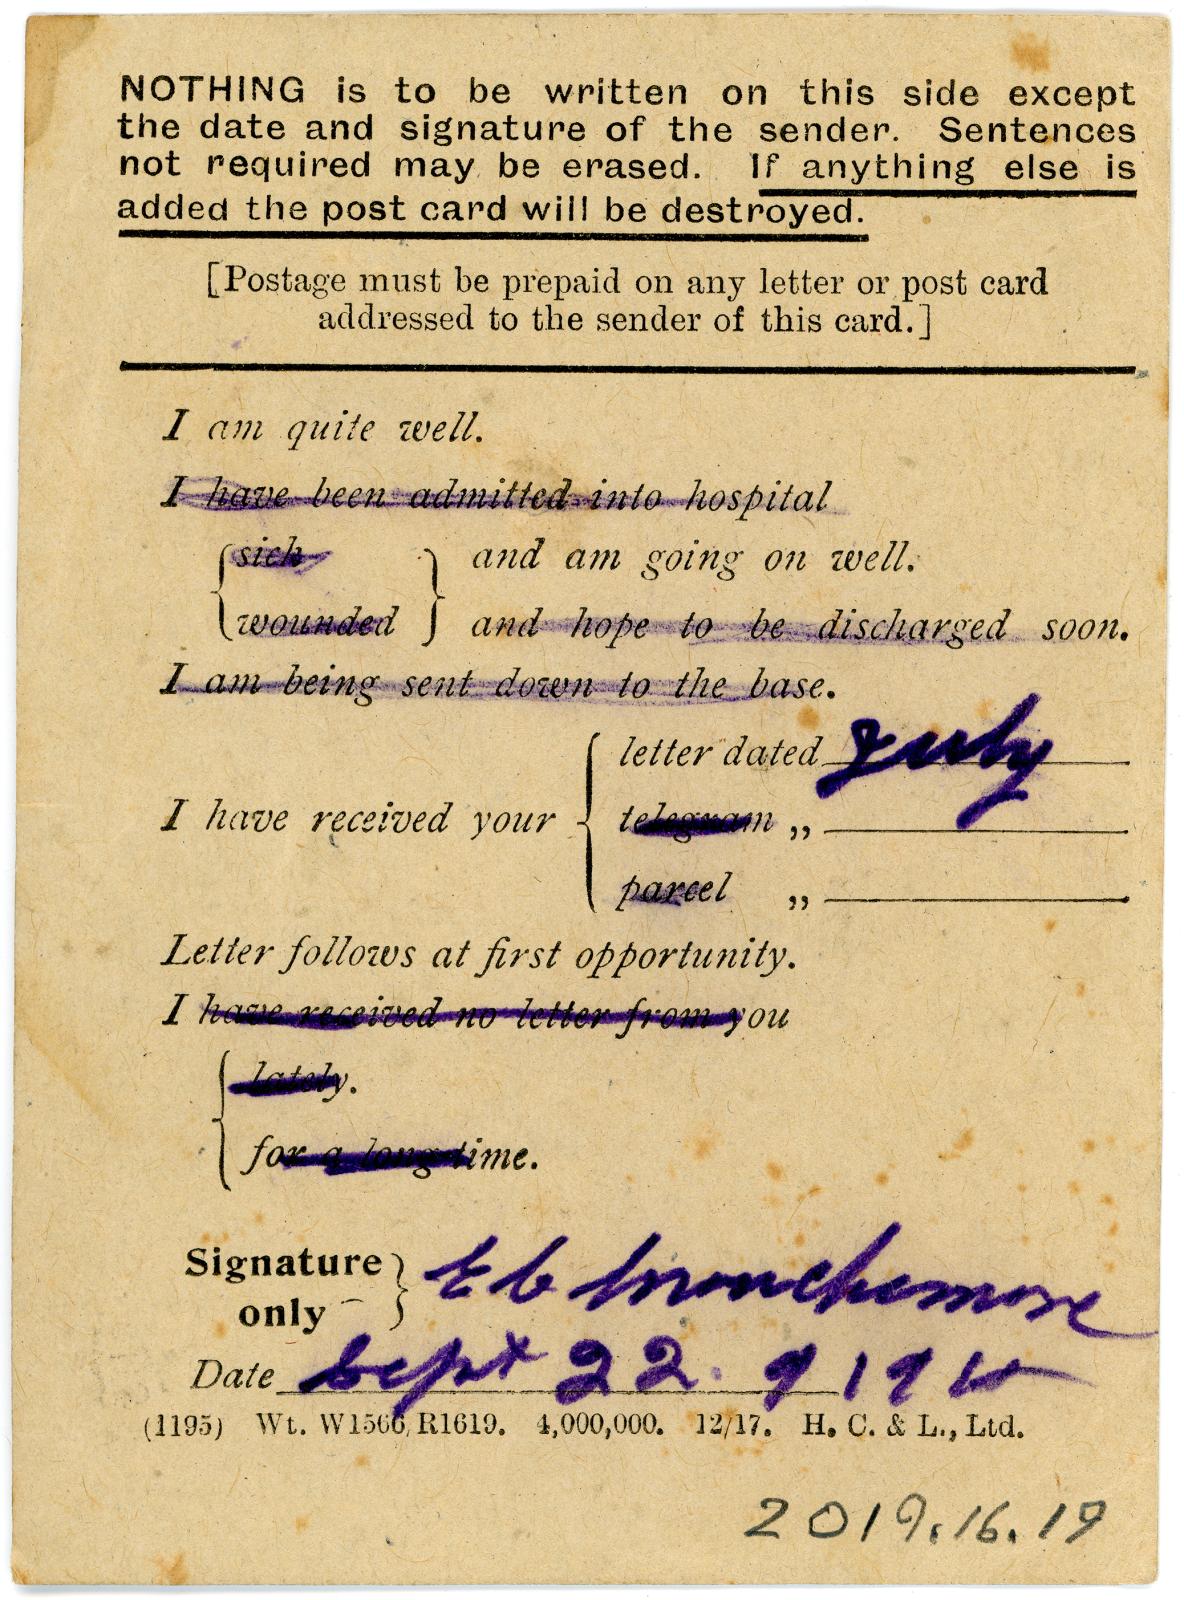 NOTHING is to be written on this side except
the date and signature of the sender. Sentences
not required may be erased. If anything else is
added the post card will be destroyed.
[Postage must be prepaid on any letter or post card
addressed to the sender of this card.]
I am quite well.
I have been admitted into hospital
sick and am going on well.
wounded and hope to be discharged soon.
I am being sent down to the base.
letter dated July
I have received your telegram „
parcel „
Letter follows at first opportunity.
I have received no letter from you
lately.
for a long time.
Signature
only
Date Sept 22.
(1195) Wt. W1566/R1619. 4,000,000. 12/17. H. C. & L., Ltd.
2019.16.19